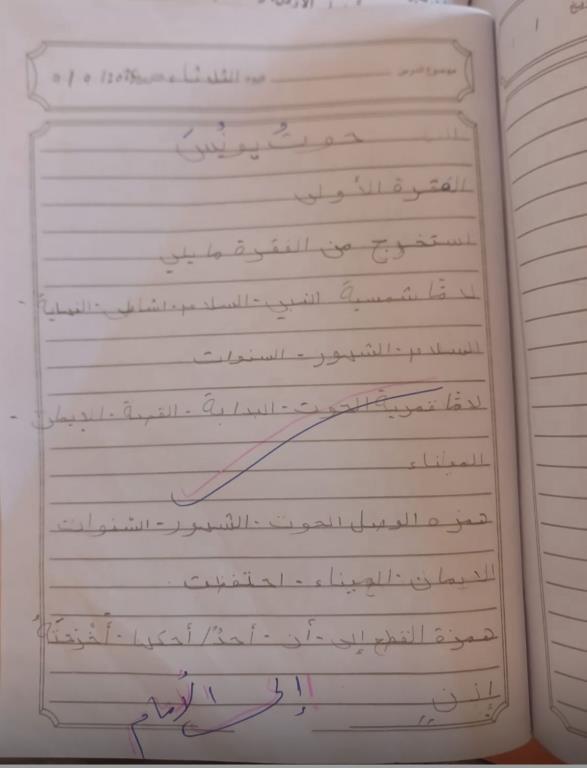 موضوع الدرس يوم الثلاثاء
حوتُ يونُسَ
الفقرة الأولى
استخرج من الفقرة ما يلي
لامًا شمسية النبي - السلام - اشاطئ - النهاية -
السلام - الشهور - السنوات
لامًا قمرية الحوت - البداية - القصة - الإيمان -
الميناء
همزه الوصل الحوت - الشهور - الشنوات
الايمان - الميناء - احتفظت
همزة القطع إلى - أن - أحدُ / أحكيها -
إذنٍ
إلى الأمام